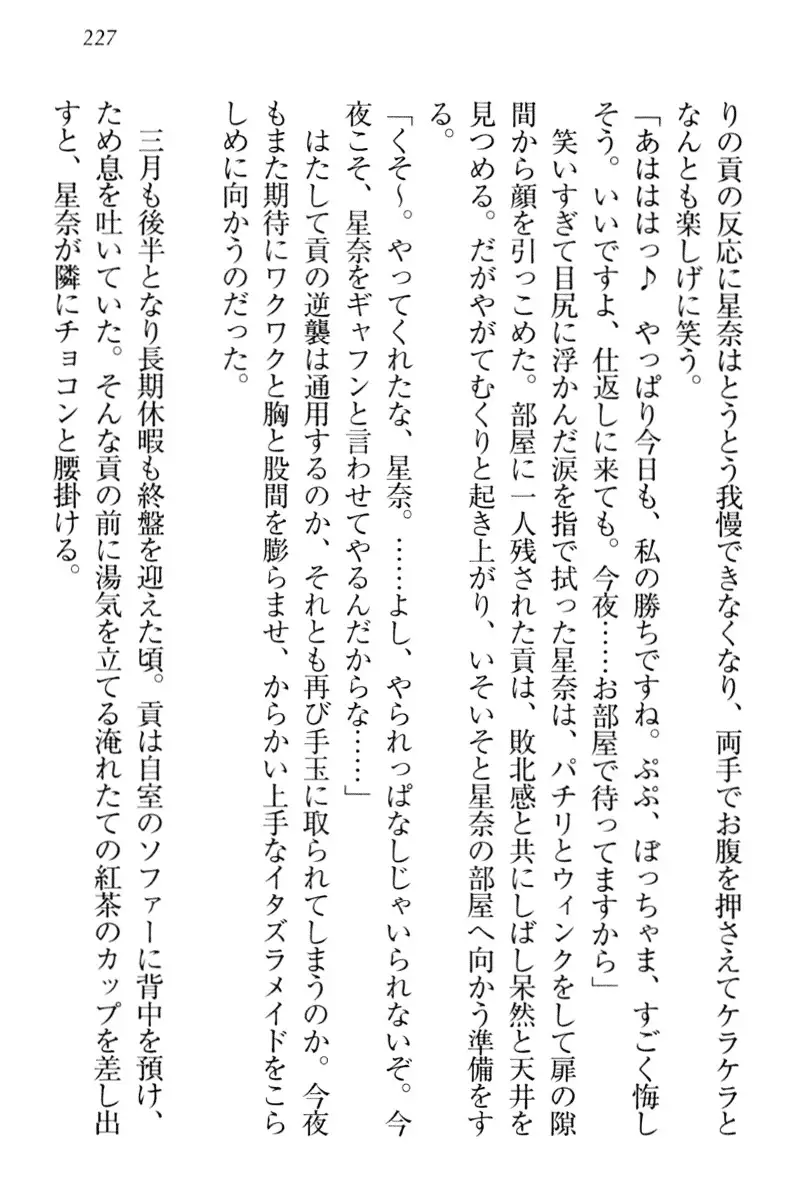 227
りの貢の反応に星奈はとうとう我慢できなくなり、両手でお腹を押さえてケラケラと
なんとも楽しげに笑う。
「あはははっ♪　やっぱり今日も、私の勝ちですね。ぷぷ、ぼっちゃま、すごく悔し
そう。いいですよ、仕返しに来ても。今夜……お部屋で待ってますから」
笑いすぎて目尻に浮かんだ涙を指で拭った星奈は、パチリとウィンクをして扉の隙
間から顔を引っこめた。部屋に一人残された貢は、敗北感と共にしばし呆然と天井を
見つめる。だがやがてむくりと起き上がり、いそいそと星奈の部屋へ向かう準備をす
る。
「くそ～。やってくれたな、星奈。……よし、やられっぱなしじゃいられないぞ。今
夜こそ、星奈をギャフンと言わせてやるんだからな……」
はたして貢の逆襲は通用するのか、それとも再び手玉に取られてしまうのか。今夜
もまた期待にワクワクと胸と股間を膨らませ、からかい上手なイタズラメイドをこら
しめに向かうのだった。
三月も後半となり長期休暇も終盤を迎えた頃。貢は自室のソファーに背中を預け、
ため息を吐いていた。そんな貢の前に湯気を立てる淹れたての紅茶のカップを差し出
すと、星奈が隣にチョコンと腰掛ける。